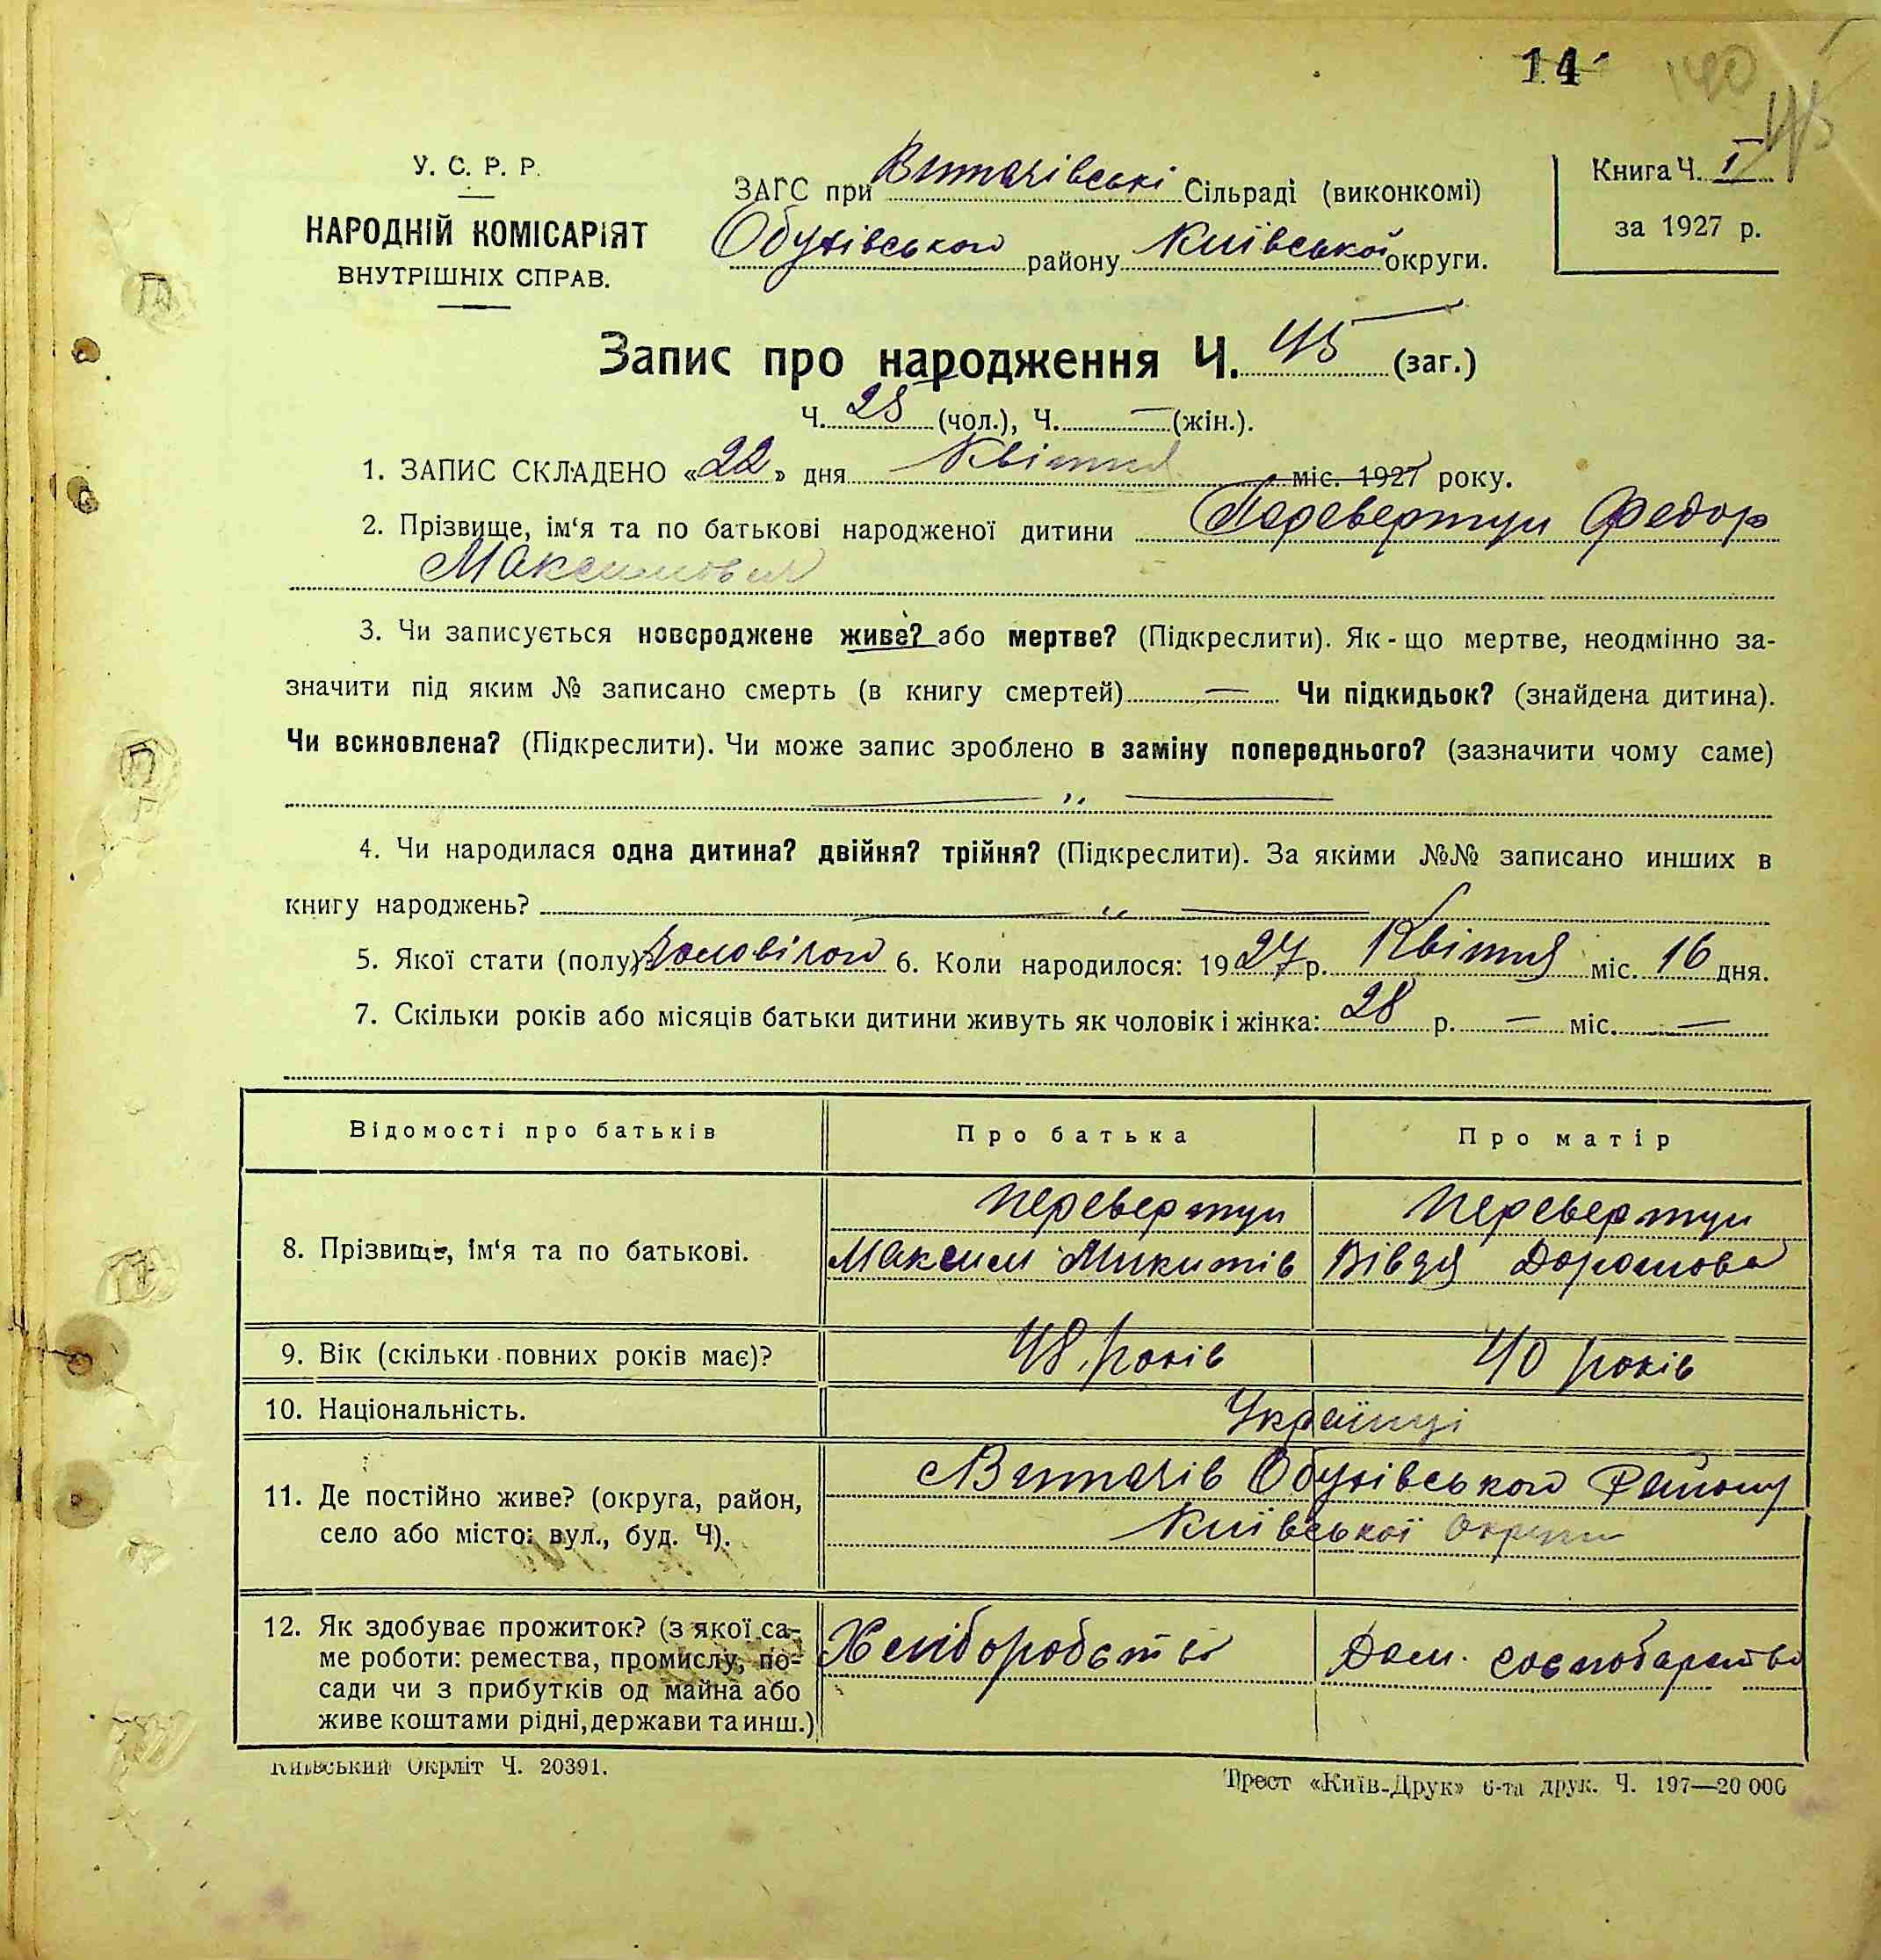 14
140
45
У. С. Р. Р.
НАРОДНІЙ КОМІСАРІЯТ
ВНУТРІШНІХ СПРАВ.
ЗАГС при Витачівські Сільраді (виконкомі)
Обухівського району Київської округи.
Книга Ч. I
за 1927 р.
Запис про народження Ч. 45 (заг.)
Ч. 25 (чол.), Ч. — (жін.).
1. ЗАПИС СКЛАДЕНО «22» дня Квітня міс. 1927 року.
2. Прізвище, ім‘я та по батькові народженої дитини Перевертун Федор
Максимович
3. Чи записується новороджене живе? або мертве? (Підкреслити). Як-що мертве, неодмінно за-
значити під яким № записано смерть (в книгу смертей) — Чи підкидьок? (знайдена дитина).
Чи всиновлена? (Підкреслити). Чи може запис зроблено в заміну попереднього? (зазначити чому саме)
— „ —
4. Чи народилася одна дитина? двійня? трійня? (Підкреслити). За якими №№ записано инших в
книгу народжень? — „ —
5. Якої стати (полу)? Чоловічого 6. Коли народилося: 1927 р. Квітня міс. 16 дня.
7. Скільки років або місяців батьки дитини живуть як чоловік і жінка: 28 р. — міс. —
Відомості про батьків Про батька Про матір
8. Прізвище, ім‘я та по батькові. Перевертун Максим Микитів Перевертун Вівдя Дорошова
9. Вік (скільки повних років має)? 48 років 40 років
10. Національність. Українці
11. Де постійно живе? (округа, район, Витачів Обухівського Району
село або місто: вул., буд. Ч). Київської Округи
12. Як здобуває прожиток? (з якої са- Хліборобство Дом. господарство
ме роботи: ремества, промислу, по-
сади чи з прибутків од майна або
живе коштами рідні, держави та инш.)
Київський Окрліт Ч. 20391.
Трест «Київ-Друк» 6-та друк. Ч. 197—20 000